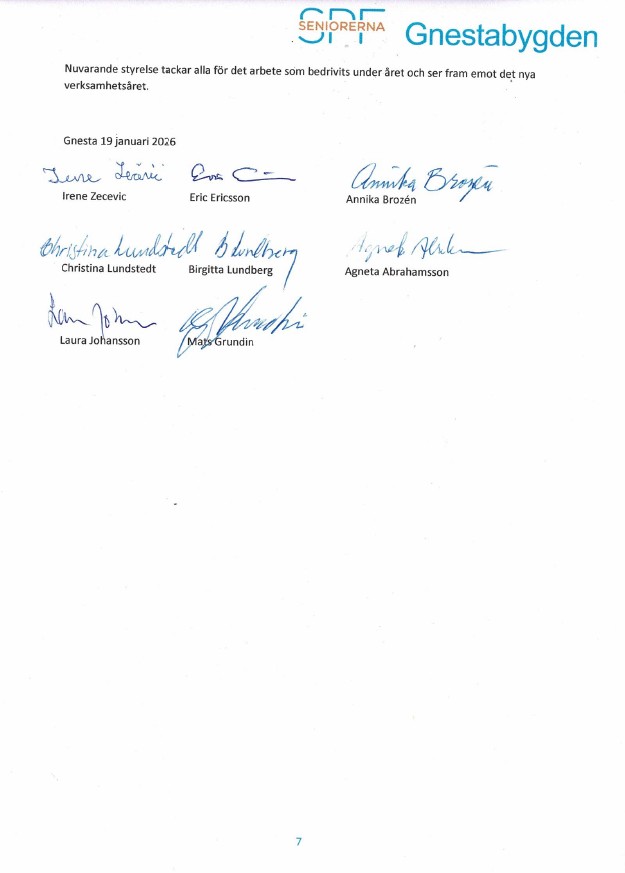 SPF
SENIORERNA
Gnestabygden
Nuvarande styrelse tackar alla för det arbete som bedrivits under året och ser fram emot det nya
verksamhetsåret.
Gnesta 19 januari 2026
Annika Brozén
Irene Zecevic Eric Ericsson Annika Brozén
Christina Lundstedt B Lundberg
Christina Lundstedt Birgitta Lundberg Agneta Abrahamsson
Laura Johansson Mats Grundin
7